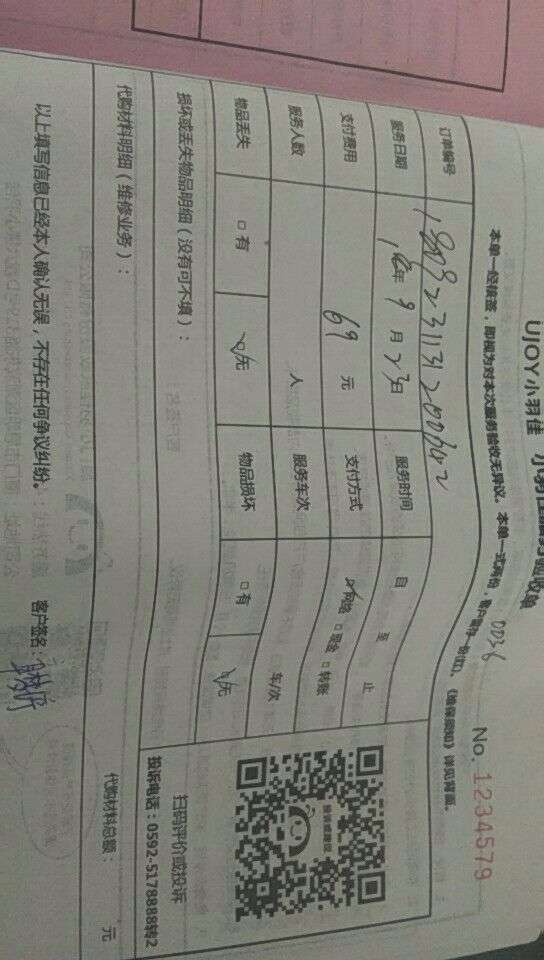 UJOY小羽佳 小羽佳服务验收单
No. 1234579
本单一经核签，即视为对本次服务验收无异议。本单一式两份，客户留存一份(红)。《维保须知》详见背面。
0036
订单编号
服务日期 18年 9月 23日 服务时间 自 至 止
支付费用 69 元 支付方式 网络 □ 现金 □ 转账
服务人数 人 服务车次 车/次
物品丢失 □ 有 □ 无 物品损坏 □ 有 □ 无
损坏或丢失物品明细（没有可不填）：
扫码评价或投诉
投诉电话：0592-5178888转2
代购材料明细（维修业务）：
代购材料总额： 元
以上填写信息已经本人确认无误，不存在任何争议纠纷。 客户签名：